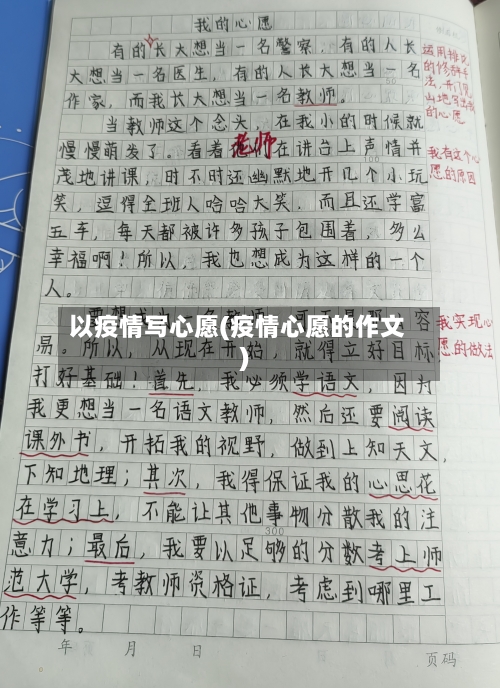 我的心愿
有的长大想当一名警察，有的人长
大想当一名医生，有的人长大想当一名
作家，而我长大想当一名教师。
当教师这个念头，在我小的时候就
慢慢萌发了。看着老师在讲台上声情并
茂地讲课，时不时还幽默地开几个小玩
笑，逗得全班人哈哈大笑，而且还学富
五车，每天都被许多孩子包围着，多么
幸福啊！所以，我也想成为这样的一个
人。
容
易。所以，从现在开始，就得立好目标
打好基础！首先，我必须学语文，因为
我更想当一名语文教师，然后还要阅读
课外书，开拓我的视野，做到上知天文，
下知地理；其次，我得保证我的心思花
在学习上，不能让其他事物分散我的注
意力；最后，我要以足够的分数考上师
范大学，考教师资格证，考虑到哪里工
作等等。
年 月 日
页码
100
300
开门见
山地写出我
的心愿
我有这个心
愿的原因
我实现心
愿的做法
以疫情写心愿(疫情心愿的作文
)